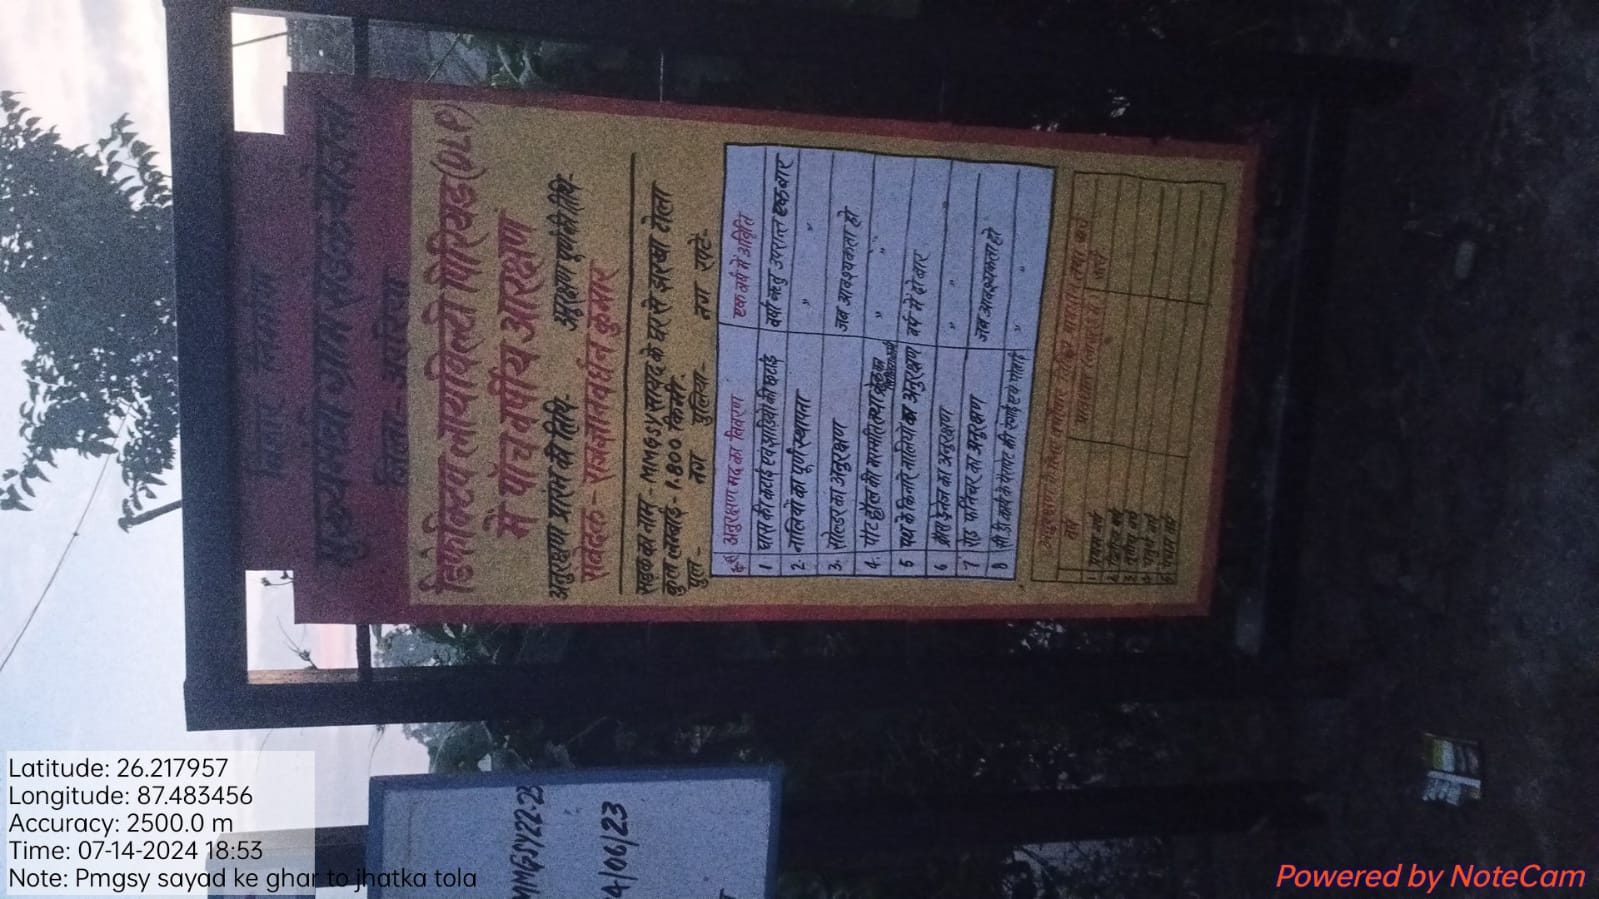 बिहार सरकार
मुख्यमंत्री ग्राम सड़क योजना
जिला - अररिया
डिफेक्टिव लायबिल्टी पिरियड (DLP)
में पाँच वर्षीय आरक्षण
अनुरक्षण प्रारंभ की तिथि- अनुरक्षण पूर्ण की तिथि-
संवेदक - राजवर्धन कुमार
सड़क का नाम - MMGSY सायद के घर से झरका टोला
कुल लम्बाई - 1.800 कि.मी.
पुल- नग पुलिया- नग रपटे-
क्र.स अनुरक्षण मद का विवरण एक वर्ष में आवृति
1 घास की कटाई एवं झाड़ियों की छटाई वर्षा ऋतु उपरान्त एकबार
2. नालियों का पूर्ण स्थापना " "
3. सोल्डर का अनुरक्षण जब आवश्यकता हो
4. पॉट हॉल की मरम्मति " "
5 पथ के किनारे नालियों का अनुरक्षण वर्ष में दो बार
6 क्रॉस ड्रेनेज का अनुरक्षण " "
7 रोड फर्निचर का अनुरक्षण जब आवश्यकता हो
8 सी.डी कार्य के पैरापेट की रंगाई एवं पोताई " "
वर्ष
1 प्रथम वर्ष
2 द्वितीय वर्ष
3 तृतीय वर्ष
4 चतुर्थ वर्ष
5 पंचम वर्ष
MMGSY 22-23
4/06/23
Latitude: 26.217957
Longitude: 87.483456
Accuracy: 2500.0 m
Time: 07-14-2024 18:53
Note: Pmgsy sayad ke ghar to jhatka tola
Powered by NoteCam